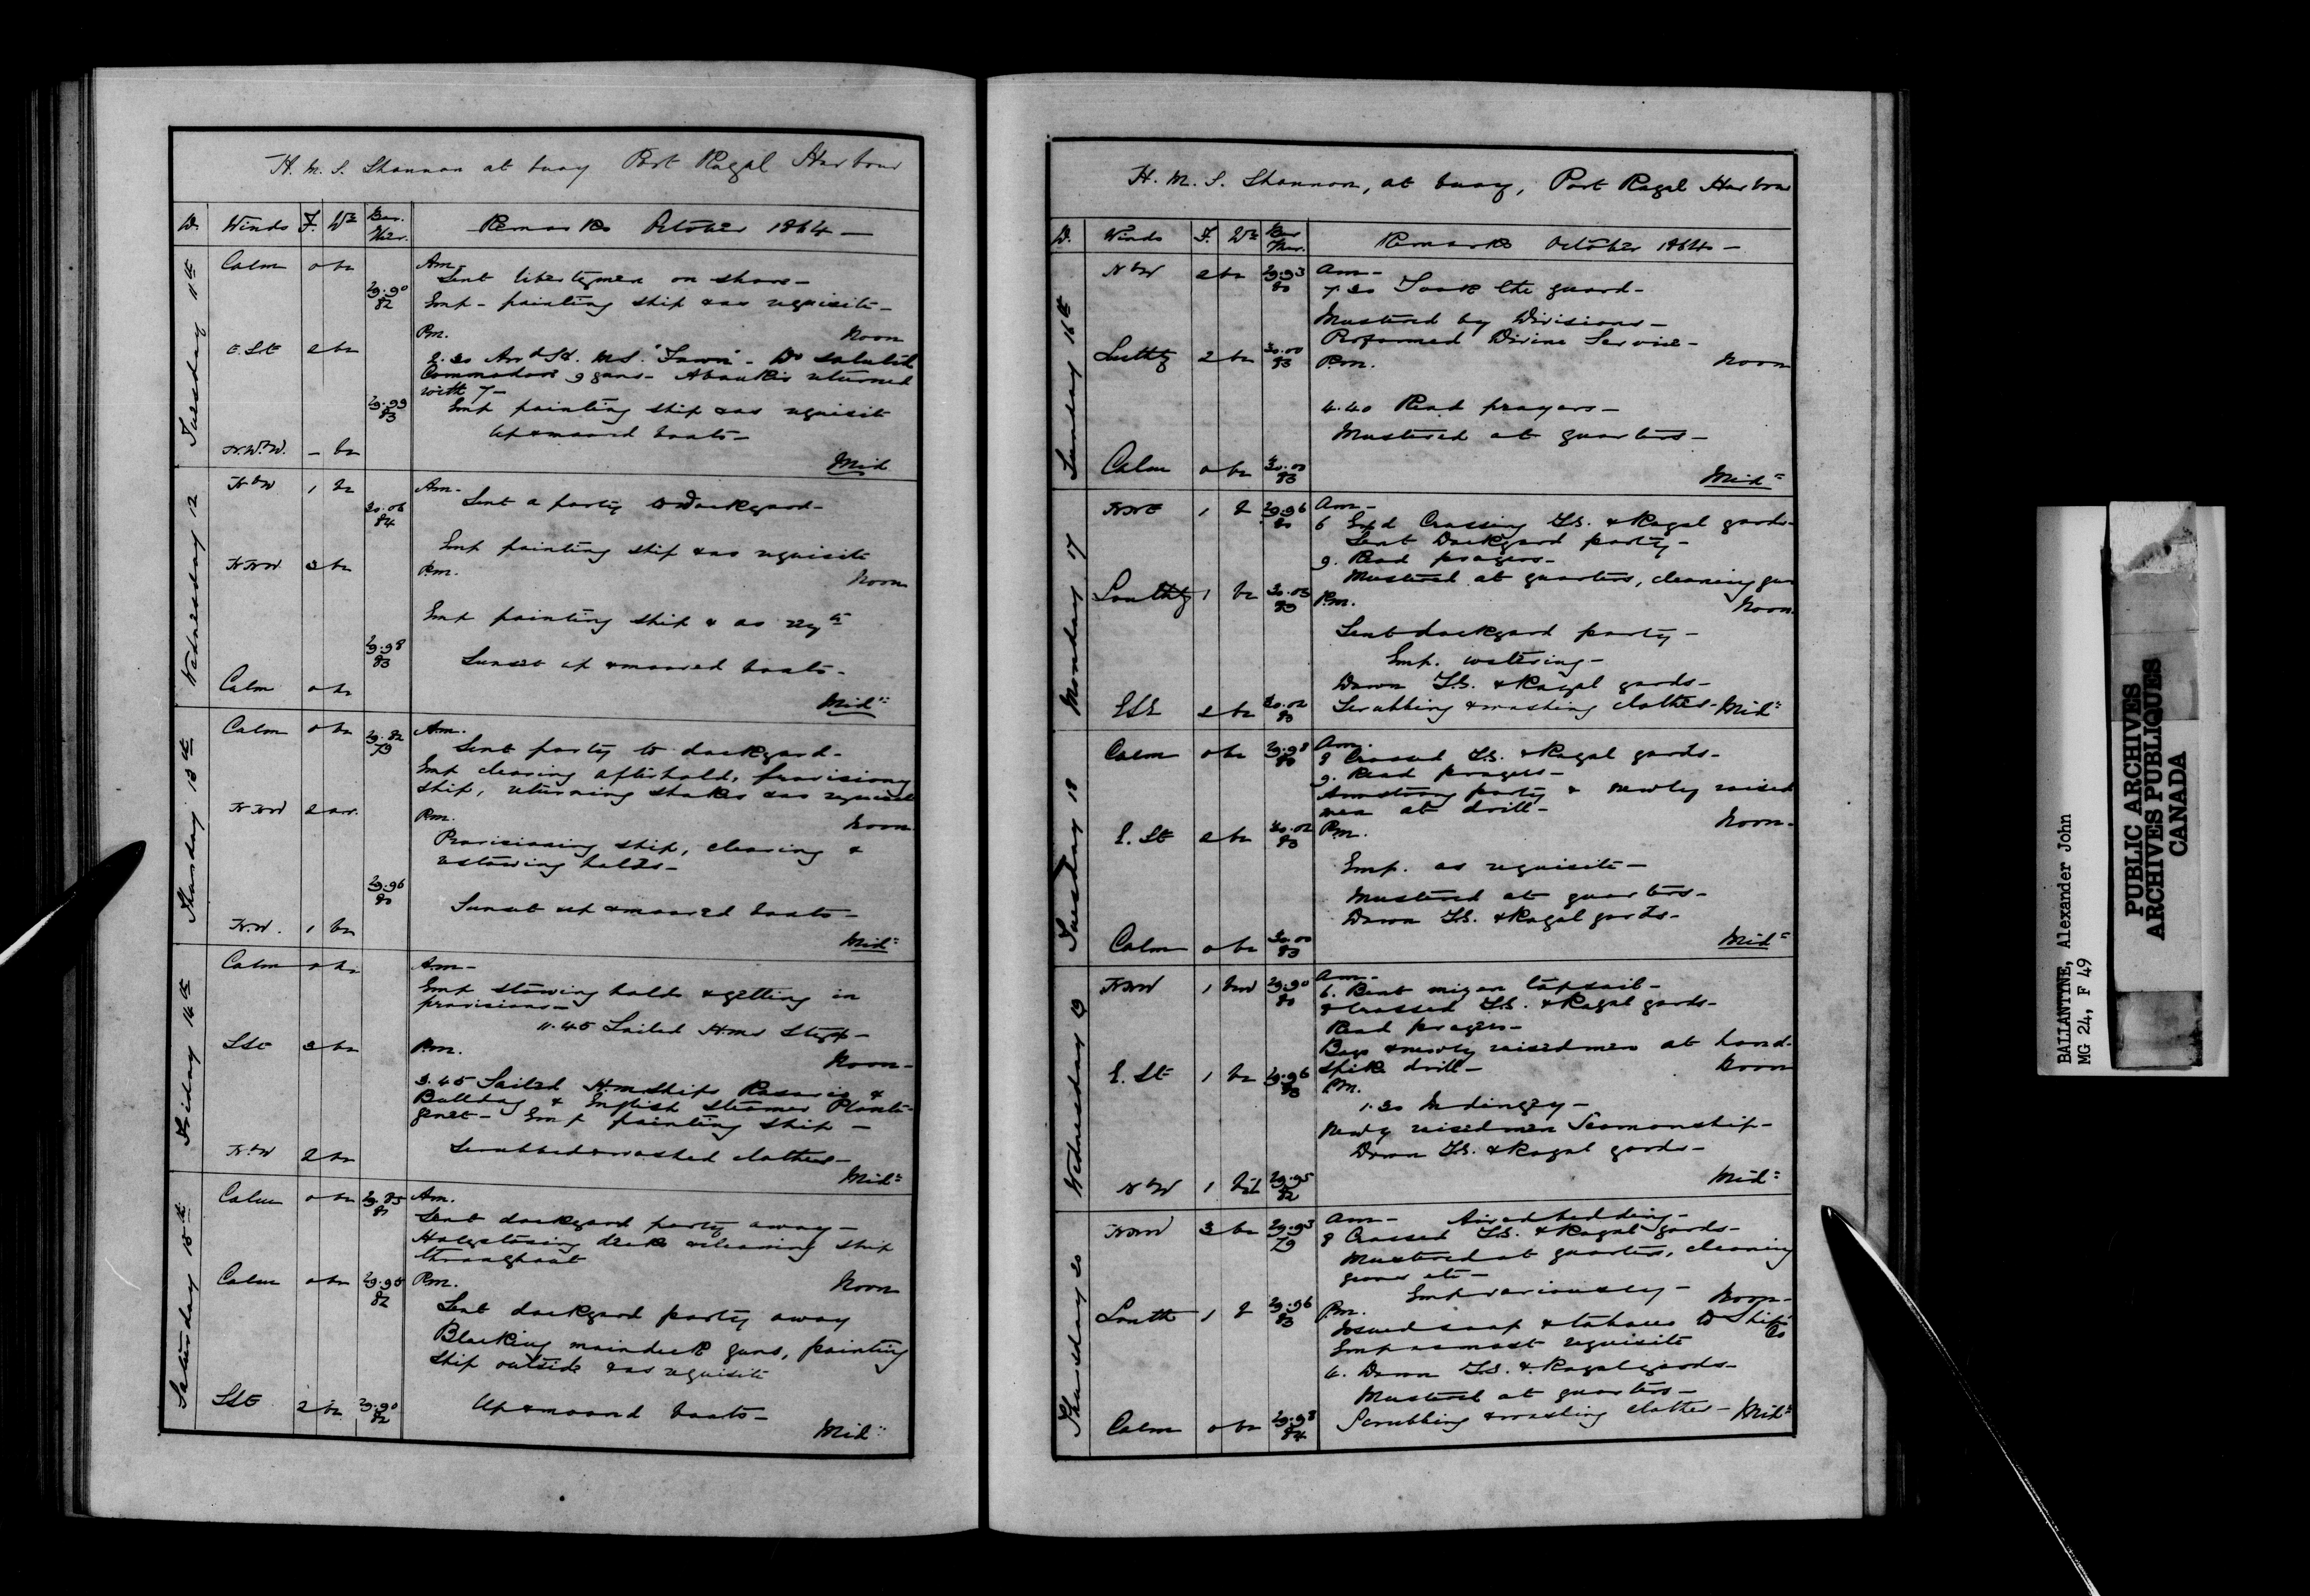 H. M. S. Shannon at buoy Port Royal Harbour
D. Winds F. Wr Bar. Ther. Remarks October 1864 —
Tuesday 11th
Calm 0 bc Am-
Sent libertymen on shore-
29.90 82 Emp- painting ship & as requisite-
Pm. Noon
E. St E 2 bc 2.30 Arrd H. M S. "Fawn"- Do saluted
Commodore 9 guns- Aboukir returned
with 7-
29.99 83 Emp painting ship & as requisite
Up & moored boats-
N.W.bW. - bc Mid
Wednesday 12
NbW 1 bc Am-
30.06 84 Sent a party to Dockyard-
Emp painting ship & as requisite
NNW 3 bc Pm. Noon
Emp painting ship & as reqte
29.98 83 Sunset up & moored boats-
Calm 0 bc Midt
Thursday 13th
Calm 0 bc 29.82 79 Am.
Sent party to dockyard-
Emp clearing afterhold, provisioning
ship, returning shakes & as requisite
NNW 2 Pm. Noon
Provisioning ship, clearing &
restowing holds-
29.96 80
Sunset up & moored boats-
N.W. 1 bc Midt
Friday 14th
Calm 0 bc Am-
Emp stowing holds & getting in
provisions-
11.45 Sailed Hms Styx-
SSE 3 bc Pm. Noon-
3.45 Sailed Hm ships Rosario &
Bulldog & English Steamer Planta-
genet- Emp painting ship-
Scrubbed & washed clothes-
NbW 2 bc Midt
Saturday 15th
Calm 0 bc 29.85 81 Am.
Sent dockyard party away-
Holystoning decks & cleaning ship
throughout
Calm 0 bc 29.95 82 Pm. Noon
Sent dockyard party away
Blacking maindeck guns, painting
ship outside & as requisite
SSE 2 bc 29.90 82 Up & moored boats-
Midt
H. M. S. Shannon, at buoy, Port Royal Harbour
D. Winds F. Wr Bar Ther. Remarks October 1864 —
Sunday 16th
NbW 2 bc 29.93 80 Am-
7.30 Took the guard-
Mustered by Divisions-
Performed Divine Service-
Southy 2 bc 30.00 83 Pm. Noon
4.40 Read prayers-
Mustered at quarters-
Calm 0 bc 30.00 83 Midt
Monday 17
NNE 1 29.96 80 Am-
6 Emd Crossing T.G. & Royal yards-
Sent Dockyard party-
9. Read prayers-
Mustered at quarters, cleaning guns
Southy 1 bc 30.03 83 Pm. Noon.
Sent dockyard party-
Emp. watering-
Down T.G. & Royal yards-
ESE 2 bc 30.02 80 Scrubbing & washing clothes- Midt
Tuesday 18
Calm 0 bc 29.98 80 Am.
8 Crossed T.G. & Royal yards-
9. Read prayers-
Armstrong party & newly raised
men at drill-
E. St E 2 bc 30.02 83 Pm. Noon-
Emp. as requisite-
Mustered at quarters-
Down T.G. & Royal yards-
Calm 0 bc 30.00 83 Midt
Wednesday 19
NNW 1 29.90 80 Am-
6. Bent mizen topsail-
8 Crossed T.G. & Royal yards-
Read prayers-
Boys & newly raised men at hand-
spike drill- Noon
E. St E 1 bc 29.96 83 Pm.
1.30 In dingey-
Newly raised men Seamanship-
Down T.G. & Royal yards-
NbW 1 29.95 82 Midt
Thursday 20
NNW 3 bc 29.93 79 Am- Aired bedding-
8 Crossed T.G. & Royal yards-
Mustered at quarters, cleaning
guns etc-
Emp variously- Noon-
South 1 29.96 83 Pm.
Issued soap & tobacco to Ship's Co
Emp as most requisite
6. Down T.G. & Royal yards-
Mustered at quarters-
Calm 0 bc 29.98 84 Scrubbing & washing clothes- Midt
BALLANTINE, Alexander John
MG 24, F 49
PUBLIC ARCHIVES
ARCHIVES PUBLIQUES
CANADA